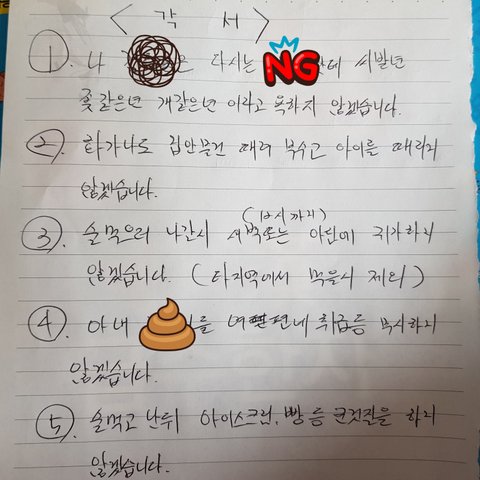 < 각 서 >
① 나 은 다시는 NG 한테 시발년
좆같은년 개같은년 이라고 욕하지 않겠습니다.
② 화가나도 집안물건 때려 부수고 아이를 때리지
않겠습니다.
③ 술먹으러 나간시 새벽또는 아침에 귀가하지
(12시까지)
않겠습니다. (타지역에서 먹을시 제외)
④ 아내 를 여편네 취급등 무시하지
않겠습니다.
⑤ 술먹고 난뒤 아이스크림, 빵 등 군것질을 하지
않겠습니다.